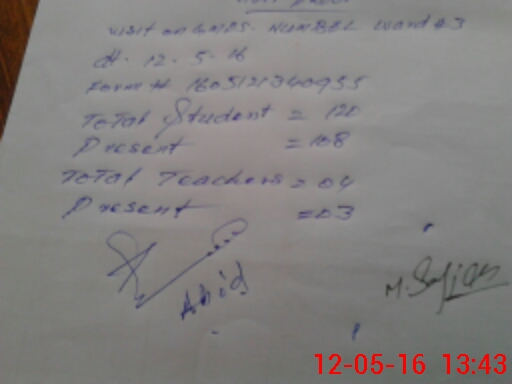 visit on GMPS. NUMBEL ward # 3
dt. 12-5-16
Form # 1605121340955
Total Student = 120
Present = 108
Total Teachers = 04
Present = 03
Abid
M. Sufian
12-05-16 13:43